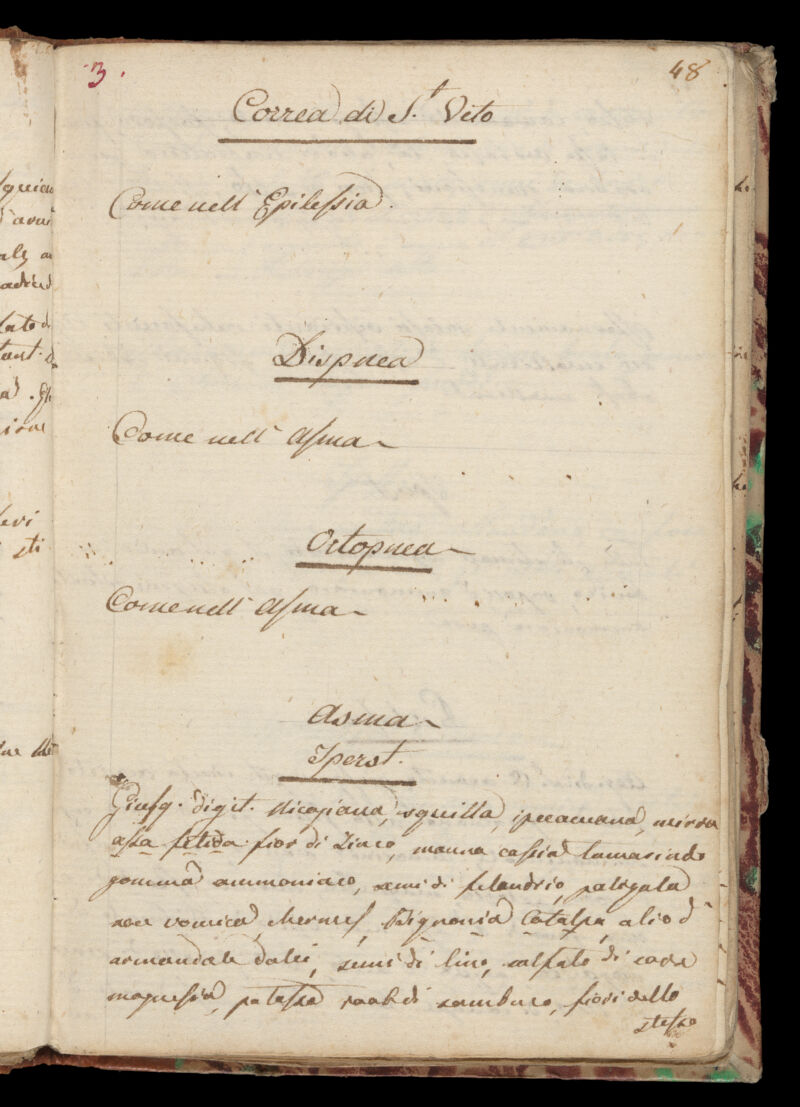 3.
48
Correa di S.t Vito
Come nell' Epilessia.
Dispnea
Come nell' Asma
Ortopnea
Come nell' Asma
Asma
Iperst.
Giusq. digit. Nicoziana, squilla, ipecacuana, mirra
assa fetida fior di Zinco, manna cassia tamarindo
gomma ammoniaco, semi di felandrio, poligala
noce vomica, Kermes, Bignonia Catalpa, olio d
armandole dolci, semi di lino, solfato di
magnesia, potassa roob di sambuco, fiori dello
stesso